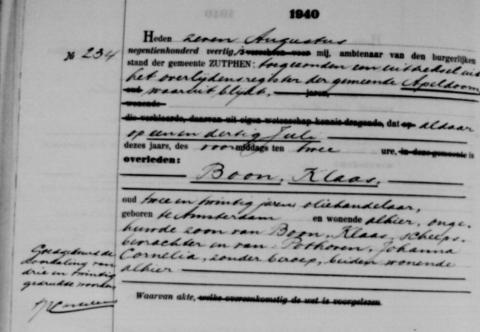 1940
No 234
Heden zeven Augustus
negentienhonderd veertig, verscheen voor mij, ambtenaar van den burgerlijken
stand der gemeente ZUTPHEN: toegezonden een uittreksel uit
het overlijdensregister der gemeente Apeldoorn
waaruit blijkt, jaren,
wonende
die verklaarde, daarvan uit eigen wetenschap kennis dragende, dat op aldaar
op een en dertig Juli
dezes jaars, des voormiddags ten twee ure, in deze gemeente is
overleden:
Boon, Klaas,
oud twee en twintig jaren oliehandelaar,
geboren te Amsterdam en wonende alhier, onge-
huwde zoon van Boon, Klaas, scheeps-
bevrachter en van Pothoven, Johanna
Cornelia, zonder beroep, beiden wonende
alhier
Goedgekeurd de
doorhaling van
drie en twintig
gedrukte woorden
Waarvan akte, welke overeenkomstig de wet is voorgelezen.